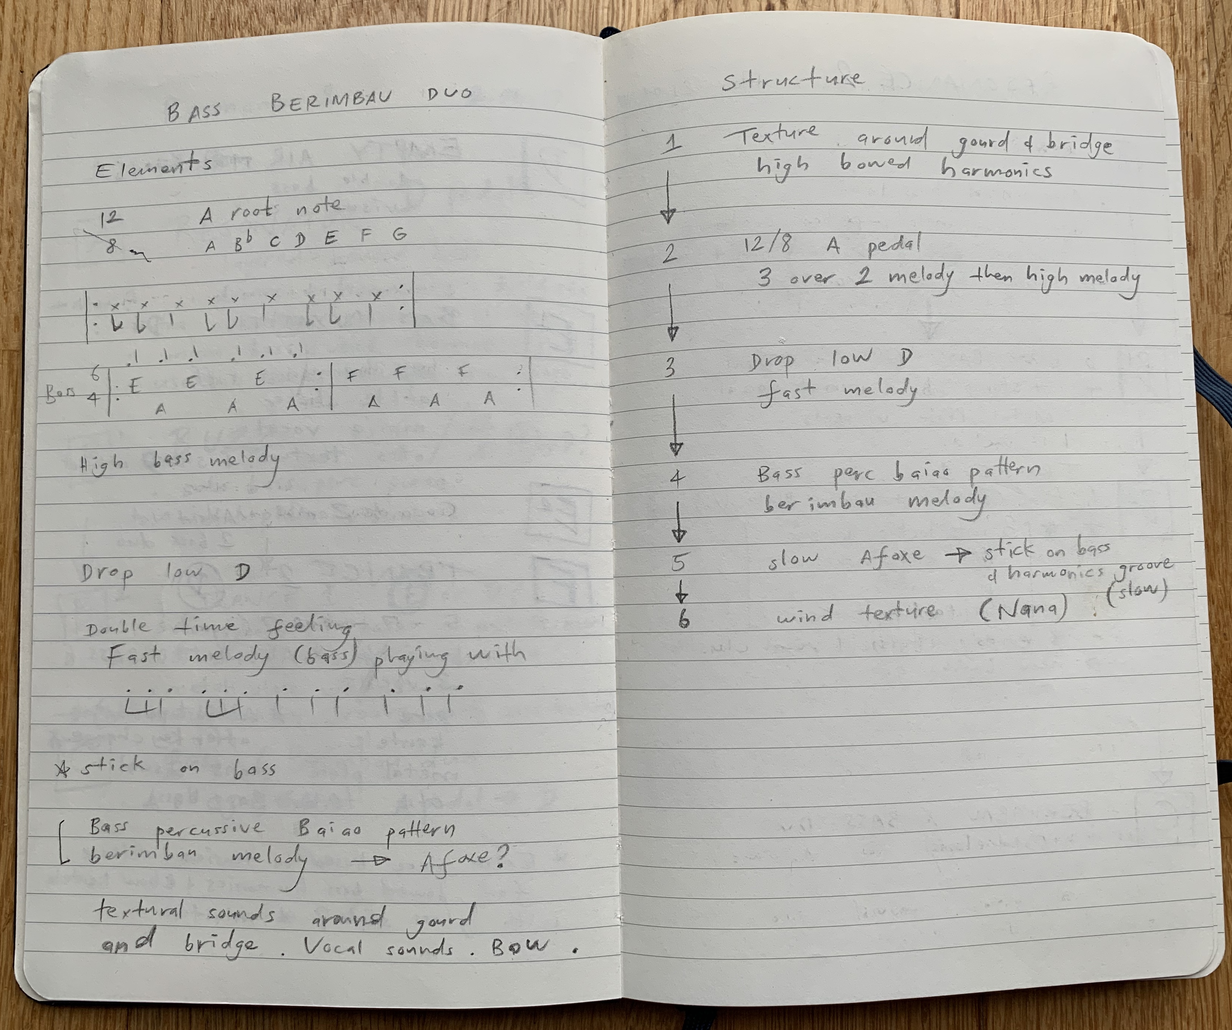 BASS BERIMBAU DUO
Elements
12 A root note
8 A Bb C D E F G
x x x x x x x x x
6
Bass 4 E E E F F F
A A A A A A
High bass melody
Drop low D
Double time feeling
Fast melody (bass) playing with
stick on bass
Bass percussive Baiao pattern
berimbau melody → Afoxe?
textural sounds around gourd
and bridge. Vocal sounds. Bow.
Structure
1 Texture around gourd & bridge
high bowed harmonics
2 12/8 A pedal
3 over 2 melody then high melody
3 Drop low D
fast melody
4 Bass perc baiao pattern
berimbau melody
5 slow Afoxe → stick on bass
& harmonics groove
(slow)
6 wind texture (Nana)